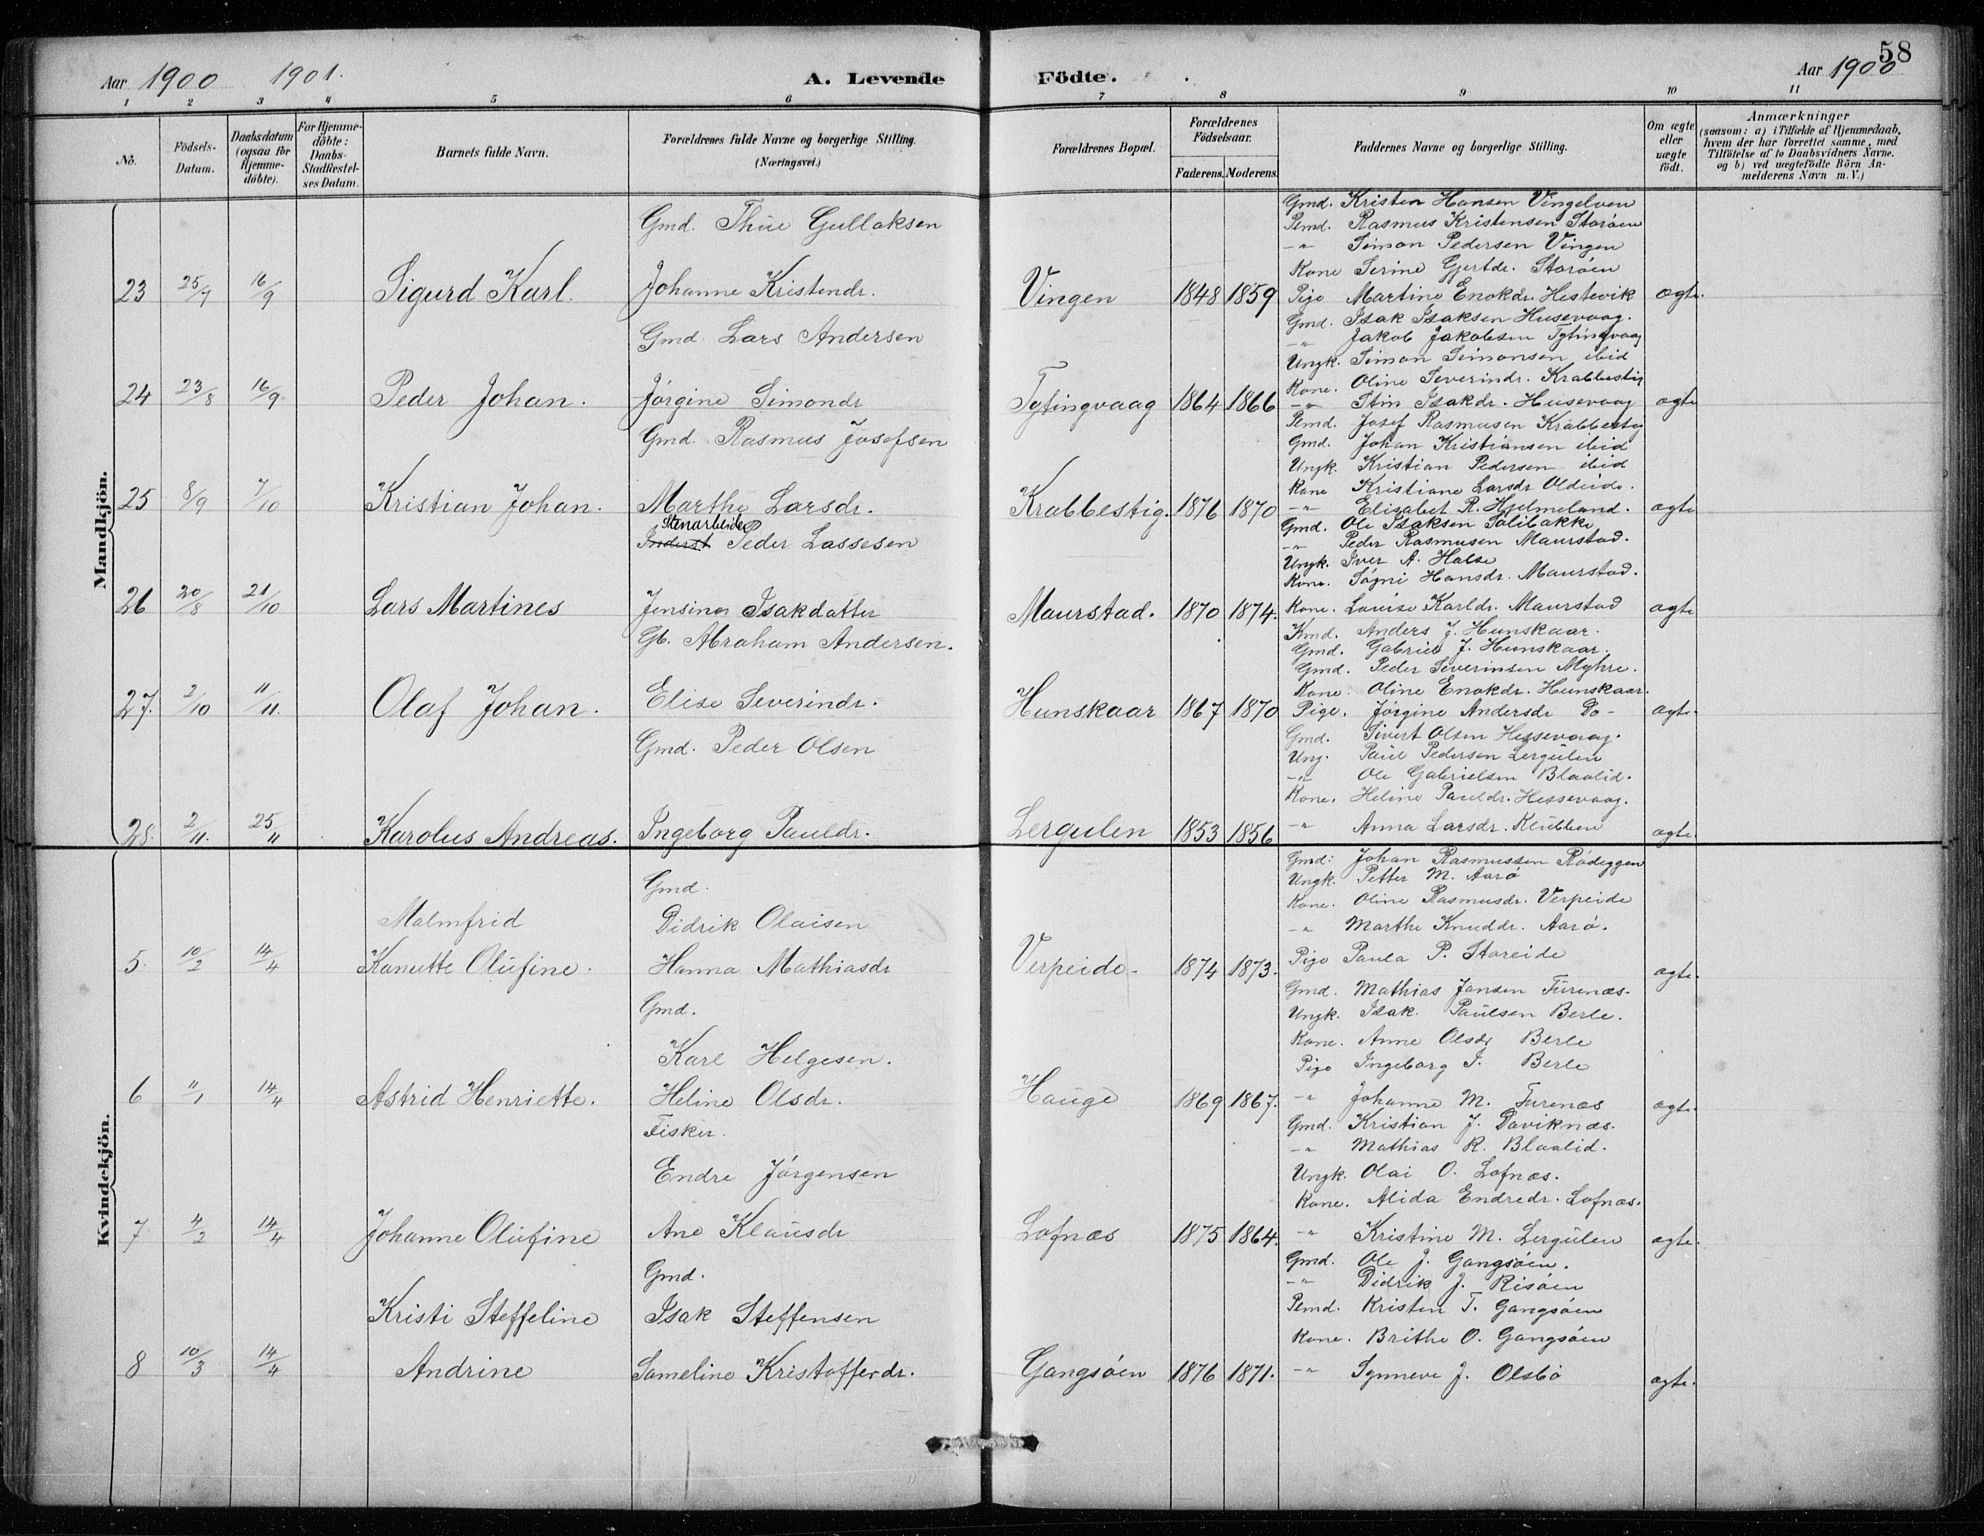 58
Aar 1900 1901. A. Levende Födte. Aar 1900
1 2 3 4 5 6 7 8 9 10 11
No. Födsels-Datum. Daabsdatum (ogsaa för Hjemme-döbte). For Hjemme-döbte: Daabs-Stadfæstel-ses Datum. Barnets fulde Navn. Forældrenes fulde Navne og borgerlige Stilling. (Næringsvei.) Forældrenes Bopæl. Forældrenes Födselsaar. Faderens. Moderens. Faddernes Navne og borgerlige Stilling. Om ægte eller uægte födt. Anmærkninger (saasom: a) i Tilfælde af Hjemmedaab, hvem der har forrettet samme, med Tilföielse af to Daabsvidners Navne. og b) ved uægtefödte Börn An-melderens Navn m. V.)
Mandkjön.
Gmd. Thue Gullaksen
Gmd. Kristen Hansen Vingelven
Pemd. Rasmus Kristensen Storøen
-"- Simon Pedersen Vingen
Kone Serine Gjertdr. Storøen
23 25/7 16/9 Sigurd Karl. Johanne Kristendr. Vingen 1848 1859 Pige Martine Enokdr. Hestevik ægte.
Gmd. Lars Andersen
Gmd. Isak Isaksen Husevaag.
-"- Jakob Jakobsen Tytingvaag
Ungk. Simon Simonsen ibid
Kone. Oline Severindr. Krabbestig
24 23/8 16/9 Peder Johan. Jørgine Simondr Tytingvaag 1864 1866 -"- Stin Isakdr. Husevaag ægte
Gmd. Rasmus Josefsen
Pemd. Josef Rasmusen Krabbestig
Gmd. Johan Kristiansen ibid
Ungk. Kristian Pedersen ibid
Kone Kristiane Larsdr Oldeide.
25 8/9 7/10 Kristian Johan. Marthe Larsdr. Krabbestig. 1876 1870 -"- Elisabet R. Hjelmeland. ægte
Stenarbeider
Inderst Peder Lassesen
Gmd. Ole Isaksen Solibakke
-"- Peder Rasmusen Maurstad.
Ungk. Iver A. Halse
Kone. Søgni Hansdr. Maurstad.
26 20/8 21/10 Lars Martines Jensine Isakdatter Maurstad. 1870 1874. Kone. Louise Karldr. Maurstad ægte
Gb. Abraham Andersen.
Kmd. Anders J. Hunskaar.
Gmd. Gabriel J. Hunskaar.
Gmd. Peder Severinsen Myhre.
Kone. Oline Enokdr. Hunskaar.
27. 2/10 11/11. Olaf Johan. Elise Severindr. Hunskaar 1867 1870 Pige. Jørgine Andersdr Do- ægte.
Gmd. Peder Olsen
Gmd. Sivert Olsen Hessevaag.
Ung. Paul Pedersen Lergulen
-"- Ole Gabrielsen Blaalid.
Kone. Heline Pauldr. Hessevaag.
28. 2/11. 25/11 Karolus Andreas. Ingeborg Pauldr. Lergulen 1853 1856 -"- Anna Larsdr. Klubben ægte.
Kvindekjön.
Gmd.
Gmd: Johan Rasmussen Rødeggen
Ungk. Petter M. Aarø
Malmfrid Didrik Olaisen
Kone. Oline Rasmusdr. Verpeide
-"- Marthe Knuddr. Aarø.
5. 10/2 14/4 Kanutte Olufine. Hanna Mathiasdr Verpeide- 1874 1873. Pige Paula P. Storeide ægte.
Gmd.
Gmd. Mathias Jansen Furenæs.
Ungk. Isak. Paulsen Berle.
Karl Helgesen.
Kone. Anne Olsdr Berle
Pige Ingeborg I. Berle
6 11/1 14/4 Astrid Henriette. Heline Olsdr. Hauge 1869 1867. -"- Johanne M. Furenæs ægte.
Fisker.
Gmd. Kristian J. Daviknæs.
-"- Mathias R. Blaalid.
Endre Jørgensen
Ungk. Olai O. Lofnæs.
Kone. Alida Endredr. Lofnæs.
7 4/2 14/4 Johanne Olufine Ane Klausdr Lofnæs 1875 1864. -"- Kristine M. Lergulen ægte.
Gmd.
Gmd. Ole J. Gangsøen.
-"- Didrik J. Risøen
Kristi Steffeline Isak Steffensen
Pemd. Kristen T. Gangsøen
Kone. Brithe O. Gangsøen
8 10/3 14/4 Andrine Sameline Kristofferdr. Gangsøen 1876 1871. -"- Synneve J. Olsbø ægte.